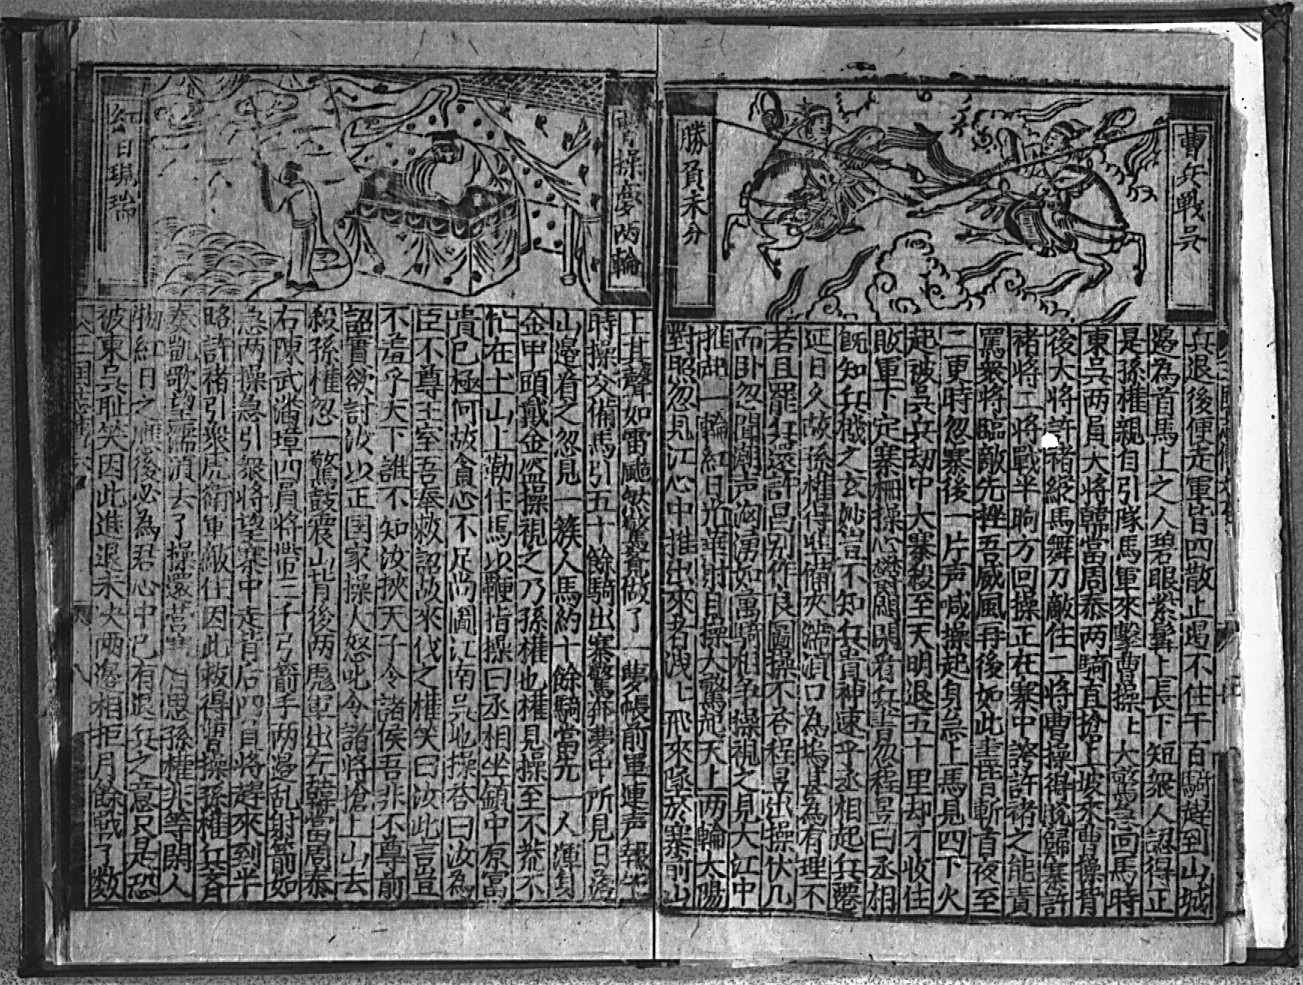 曹兵戰吳
勝負未分
兵退後便走軍皆四散止遏不住千百騎趕到山城
邉為首馬上之人碧眼紫髯上長下短衆人認得正
是孫權親自引隊馬軍來擊曹操上大驚急回馬時
東吳兩員大將韓當周泰兩騎直搶上坡來曹操背
後大將許褚縱馬舞刀敵住二將曹操得脫歸寨許
褚將二將戰半晌方回操正在寨中誇許褚之能責
罵衆將臨敵先挫吾威風再後如此盡皆斬首夜至
二更時忽寨後一片声喊操起身急上馬見四下火
起破吳兵劫中大寨殺至天明退五十里却才收住
敗軍下定寨柵操心鬱悶閑看兵書忽程昱曰丞相
既知兵機之玄妙豈不知兵貴神速乎丞相起兵遷
延日久故孫權得準備夾濡湏口為塢甚為有理不
若且罷兵還許昌別作良圖操不荅程昱出操伏几
而卧忽聞潮声洶湧如萬騎相争操視之見大江中
推出一輪紅日光華射目操大驚起天上兩輪太陽
對照忽見江心中推出來者洩上飛來墜於寨前山
曹操夢兩輪
紅日現瑞
上其聲如雷颯然驚覺做了一夢帳前軍連声報午
時操交備馬引五十餘騎出寨驚奔夢中所見日落
山邉看之忽見一簇人馬約十餘騎當先一人渾身
金甲頭戴金盔操視之乃孫權也權見操至不荒不
忙在土山上勒住馬以鞭指操曰丞相坐鎮中原富
貴已極何故貪心不足尚圖江南吳地操荅曰汝為
臣不尊王室吾奉敕詔故來伐之權笑曰汝此言豈
不羞乎天下誰不知汝挾天子令諸侯吾非不尊前
詔實欲討汝以正国家操人怒叱令諸將搶上山去
殺孫權忽一驚鼓震山背後兩彪軍出左韓當周泰
右陳武潘璋四員將帶三千弓箭手兩邉乱射箭如
急雨操急引衆將望寨中走背后四員將趕來到半
路許褚引衆虎衛軍敵住因此救得曹操孫權兵齊
奏凱歌望濡湏去了操還營自思孫權非等閑人
物紅日之應後必為君心中已有退兵之意只是恐
被東吳恥笑因此進退未决兩邉相拒月餘戰了數